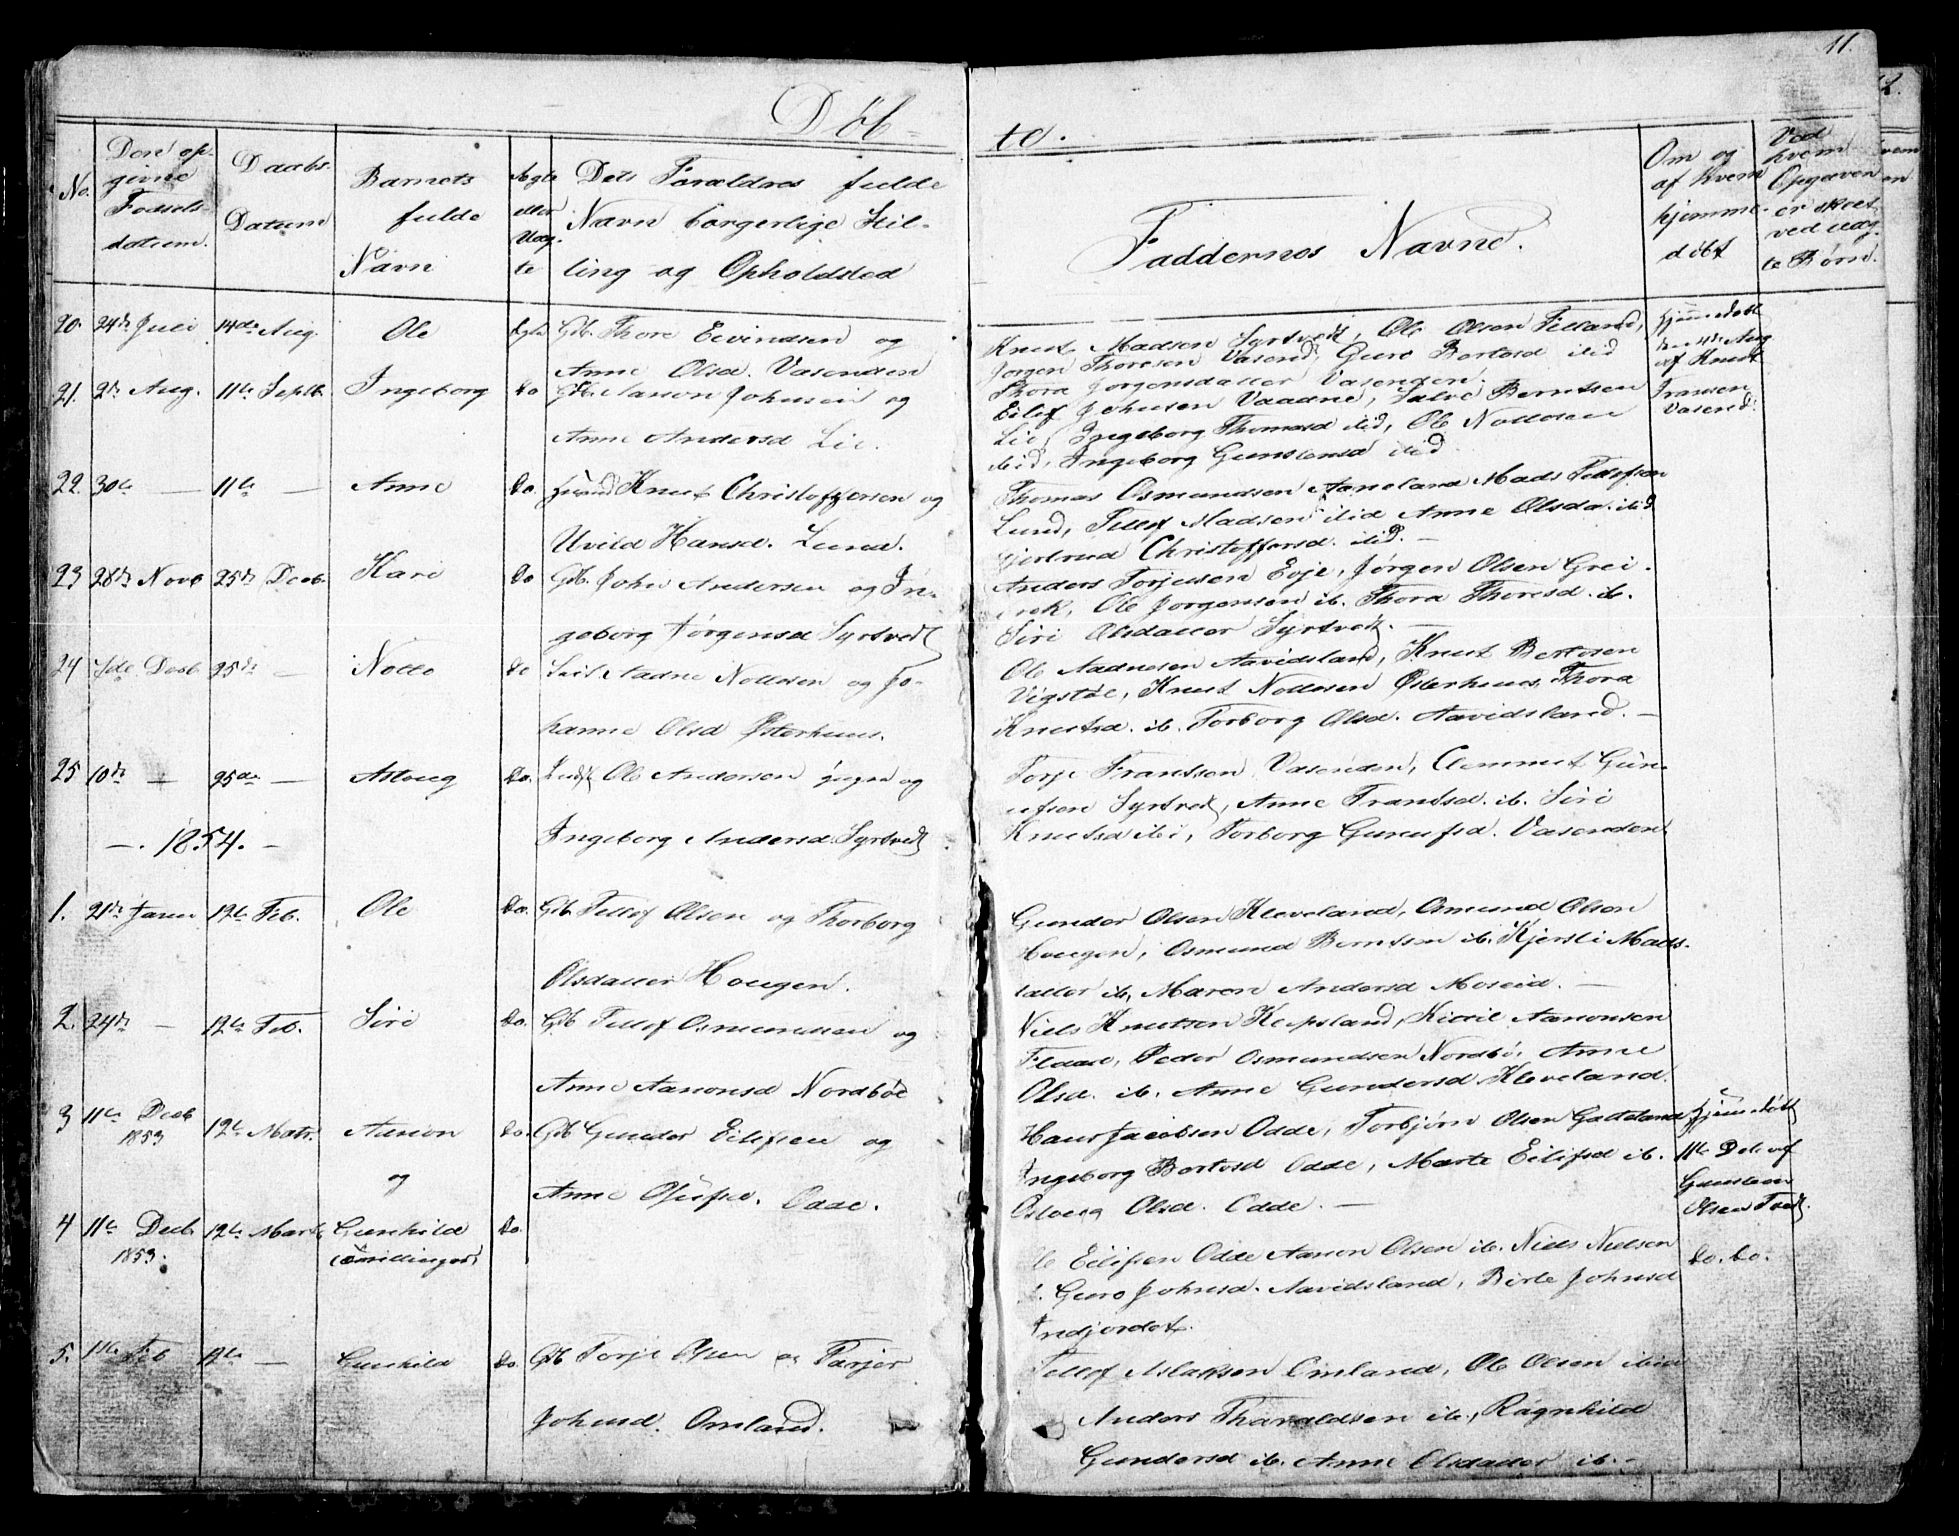 11.
Døb-
te.
No.
Den op-
givne
Fødsels-
datum.
Daabs-
Datum
Barnets
fulde
Navn
Ægte
eller
Uæg-
te
Dets Forældres fulde
Navn borgerlige Stil-
ling og Opholdsted
Faddernes Navne.
Om og
af hvem
hjemme-
døbt
Ved
hvem
Opgaven
er skeet
ved uæg-
te Børn.
20. 24de Juli 14de Aug. Ole Ægte Gb. Thore Eivindsen og
Anne Olsd. Vasenden
Knut Madsen Syrtvedt, Ole Olsen Felland,
Jørgen Thoresen Vasend, Guro Bertesd ibid
Thora Jørgensdatter Vasenden.
Hjemmedøbt
den 4de Aug
af Knut
Fransen
Vasend.
21. 2de Aug. 11te Septb. Ingeborg Do Gb. Aanon Johnsen og
Anne Andersd Lie.
Eilef Johnsen Vaadne, Salve Berntsen
Lie, Ingeborg Thomasd ibid, Ole Nottosen
ibid, Ingeborg Gunstensd ibid
22. 30te — 11te — Anne Do. Knut Christoffersen og
Uvild Hansd. Lund.
Thomas Osmundsen Aaneland Mads Tellefsen
Lund, Tellef Madsen ibid Anne Olsda. ibid
Gjertrud Christoffersd. ibid. —
23 28de Novb 25de Decb. Kari Do Gb. John Andersen og In-
geborg Jørgensd Syrtvedt
Anders Torjusen Evje, Jørgen Olsen Grei-
Ole Jørgensen ib. Thora Thoresd. ib.
Siri Olsdatter Syrtvedt. —
24 7de Decb 25de — Notto Do Aadne Nottosen og Jo-
hanne Olsd Østerhuus.
Ole Aadnesen Aavidsland, Knut Bertosen
Vigstøl, Knut Nottosen Østerhuus, Thora
Knutsd. ib. Torborg Olsd. Aavidsland. —
25 10de — 25de — Aslaug Do. Ole Andersen og
Ingeborg Andersd. Syrtvedt
Torje Frantsen Vasenden, Clemmet Gun-
ufsen Syrtvedt, Anne Frantsd. ib. Siri
Knutsd ibi, Torborg Gunufsd. Vasenden
—. 1854. —
1. 21de Janu 12te Feb. Ole Do. Gb. Tellef Olsen og Thorborg
Olsdatter Hougen.
Gunder Olsen Kleveland, Osmund Olsen
Hougen, Osmund Berntsen ib. Kjersti Mads-
datter ib, Maren Andersd Moseid. —
2. 24de — 12te Feb. Siri Do. Gb Tellef Osmundsen og
Anne Aanonsd Nordbøe
Niels Knutsen Keipsland, Kittil Aanonsen
Flaae, Peder Osmundsen Nordbø, Anne
Olsd. ib. Anne Gundersd Kleveland.
3 11te Decb
1853 12te Mats. Aanon
og Do. Gb Gunder Eilifsen og
Anne Olufsd. Odde.
Hans Jacobsen Odde, Torbjørn Olsen Galteland
Ingeborg Bertosd Odde, Marte Eilifsd ib.
Aslaug Olsd. Odde. —
Hjemmedøbt
11te Dec af
Gunsteen
Olsen Tvedt.
4 11te Decb
1853. 12te Marts Gunhild
(Tvillinger) Do.
Ole Eilifsen Odde Aanon Olsen ib. Niels Nielsen
ib. Guro Johnsd. Aavidsland, Birte Johnsd
Indjordet.
Do. Do.
5. 11te Feb 12te — Gunhild Do. Gb Torje Olsen og Tarjer
Johnsd. Omland.
Tellef Aslaksen Omland, Ole Olsen ibid
Anders Tharaldsen ib., Ragnhild
Gundersd ib. Anne Olsdatter ib. —